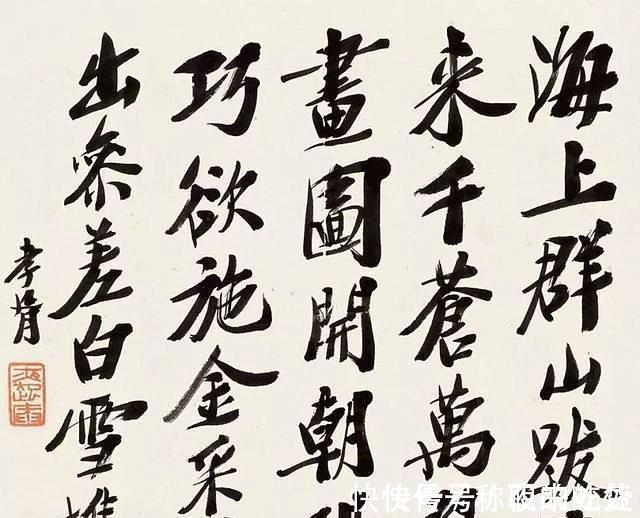 海上群山跋
来千蒼萬
畫圖開朝
巧欲施金采
出參差白雪
孝胥